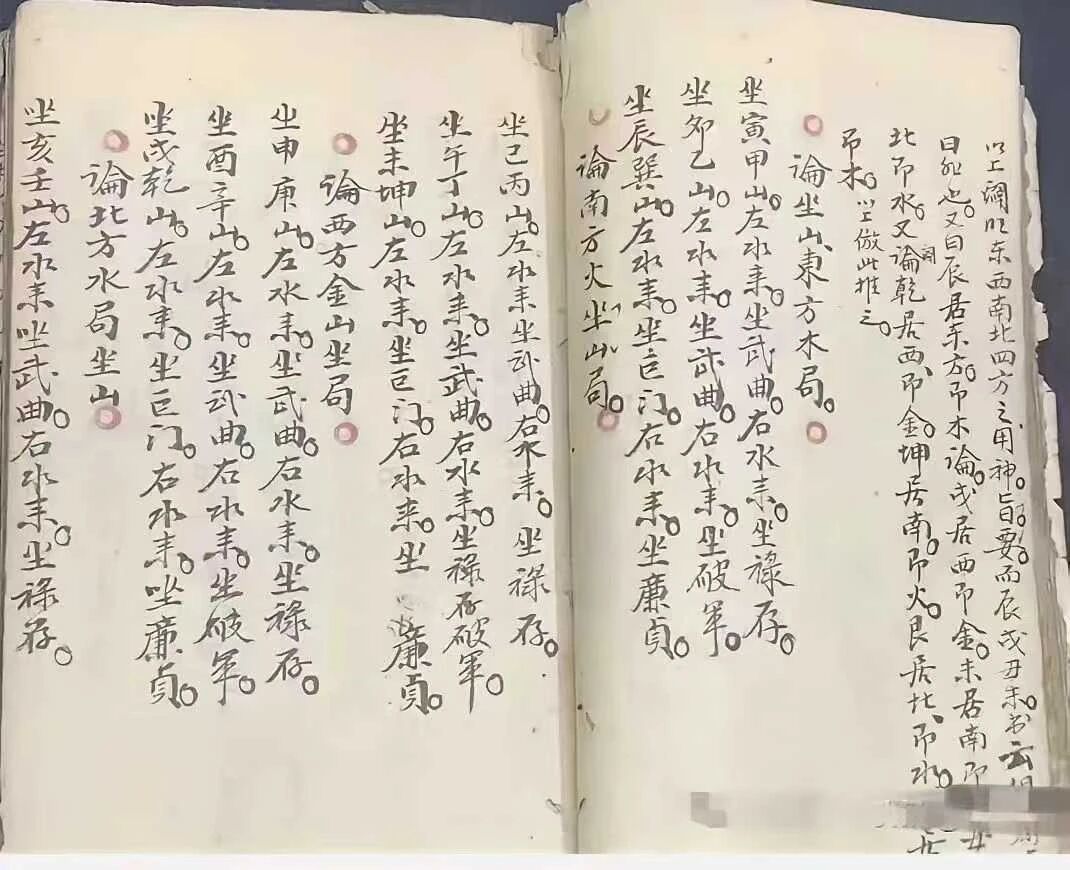 以上阐明东西南北四方之用神。旨要。而辰戌丑未。书云
曰非也。又曰辰居东方。即木论。戌居西即金。未居南即
北即水。又论乾居西、即金。坤居南。即火。艮居北、即水。
即木。以上仿此推之。
論坐山東方木局。
坐寅甲山。左水来。坐武曲。右水来。坐禄存。
坐卯乙山。左水来。坐武曲。右水来。坐破军。
坐辰巽山。左水来。坐巨门。右水来。坐廉貞。
論南方火坐山局。
坐巳丙山。左水来坐武曲。右水来。坐禄存。
坐午丁山。左水来。坐武曲。右水来。坐禄存破军。
坐未坤山。左水来。坐巨门。右水来。坐廉貞。
論西方金山坐局
坐申庚山。左水来。坐武曲。右水来。坐禄存。
坐酉辛山。左水来。坐武曲。右水来。坐破军。
坐戌乾山。左水来。坐巨门。右水来。坐廉貞。
論北方水局坐山
坐亥壬山。左水来坐武曲。右水来。坐禄存。